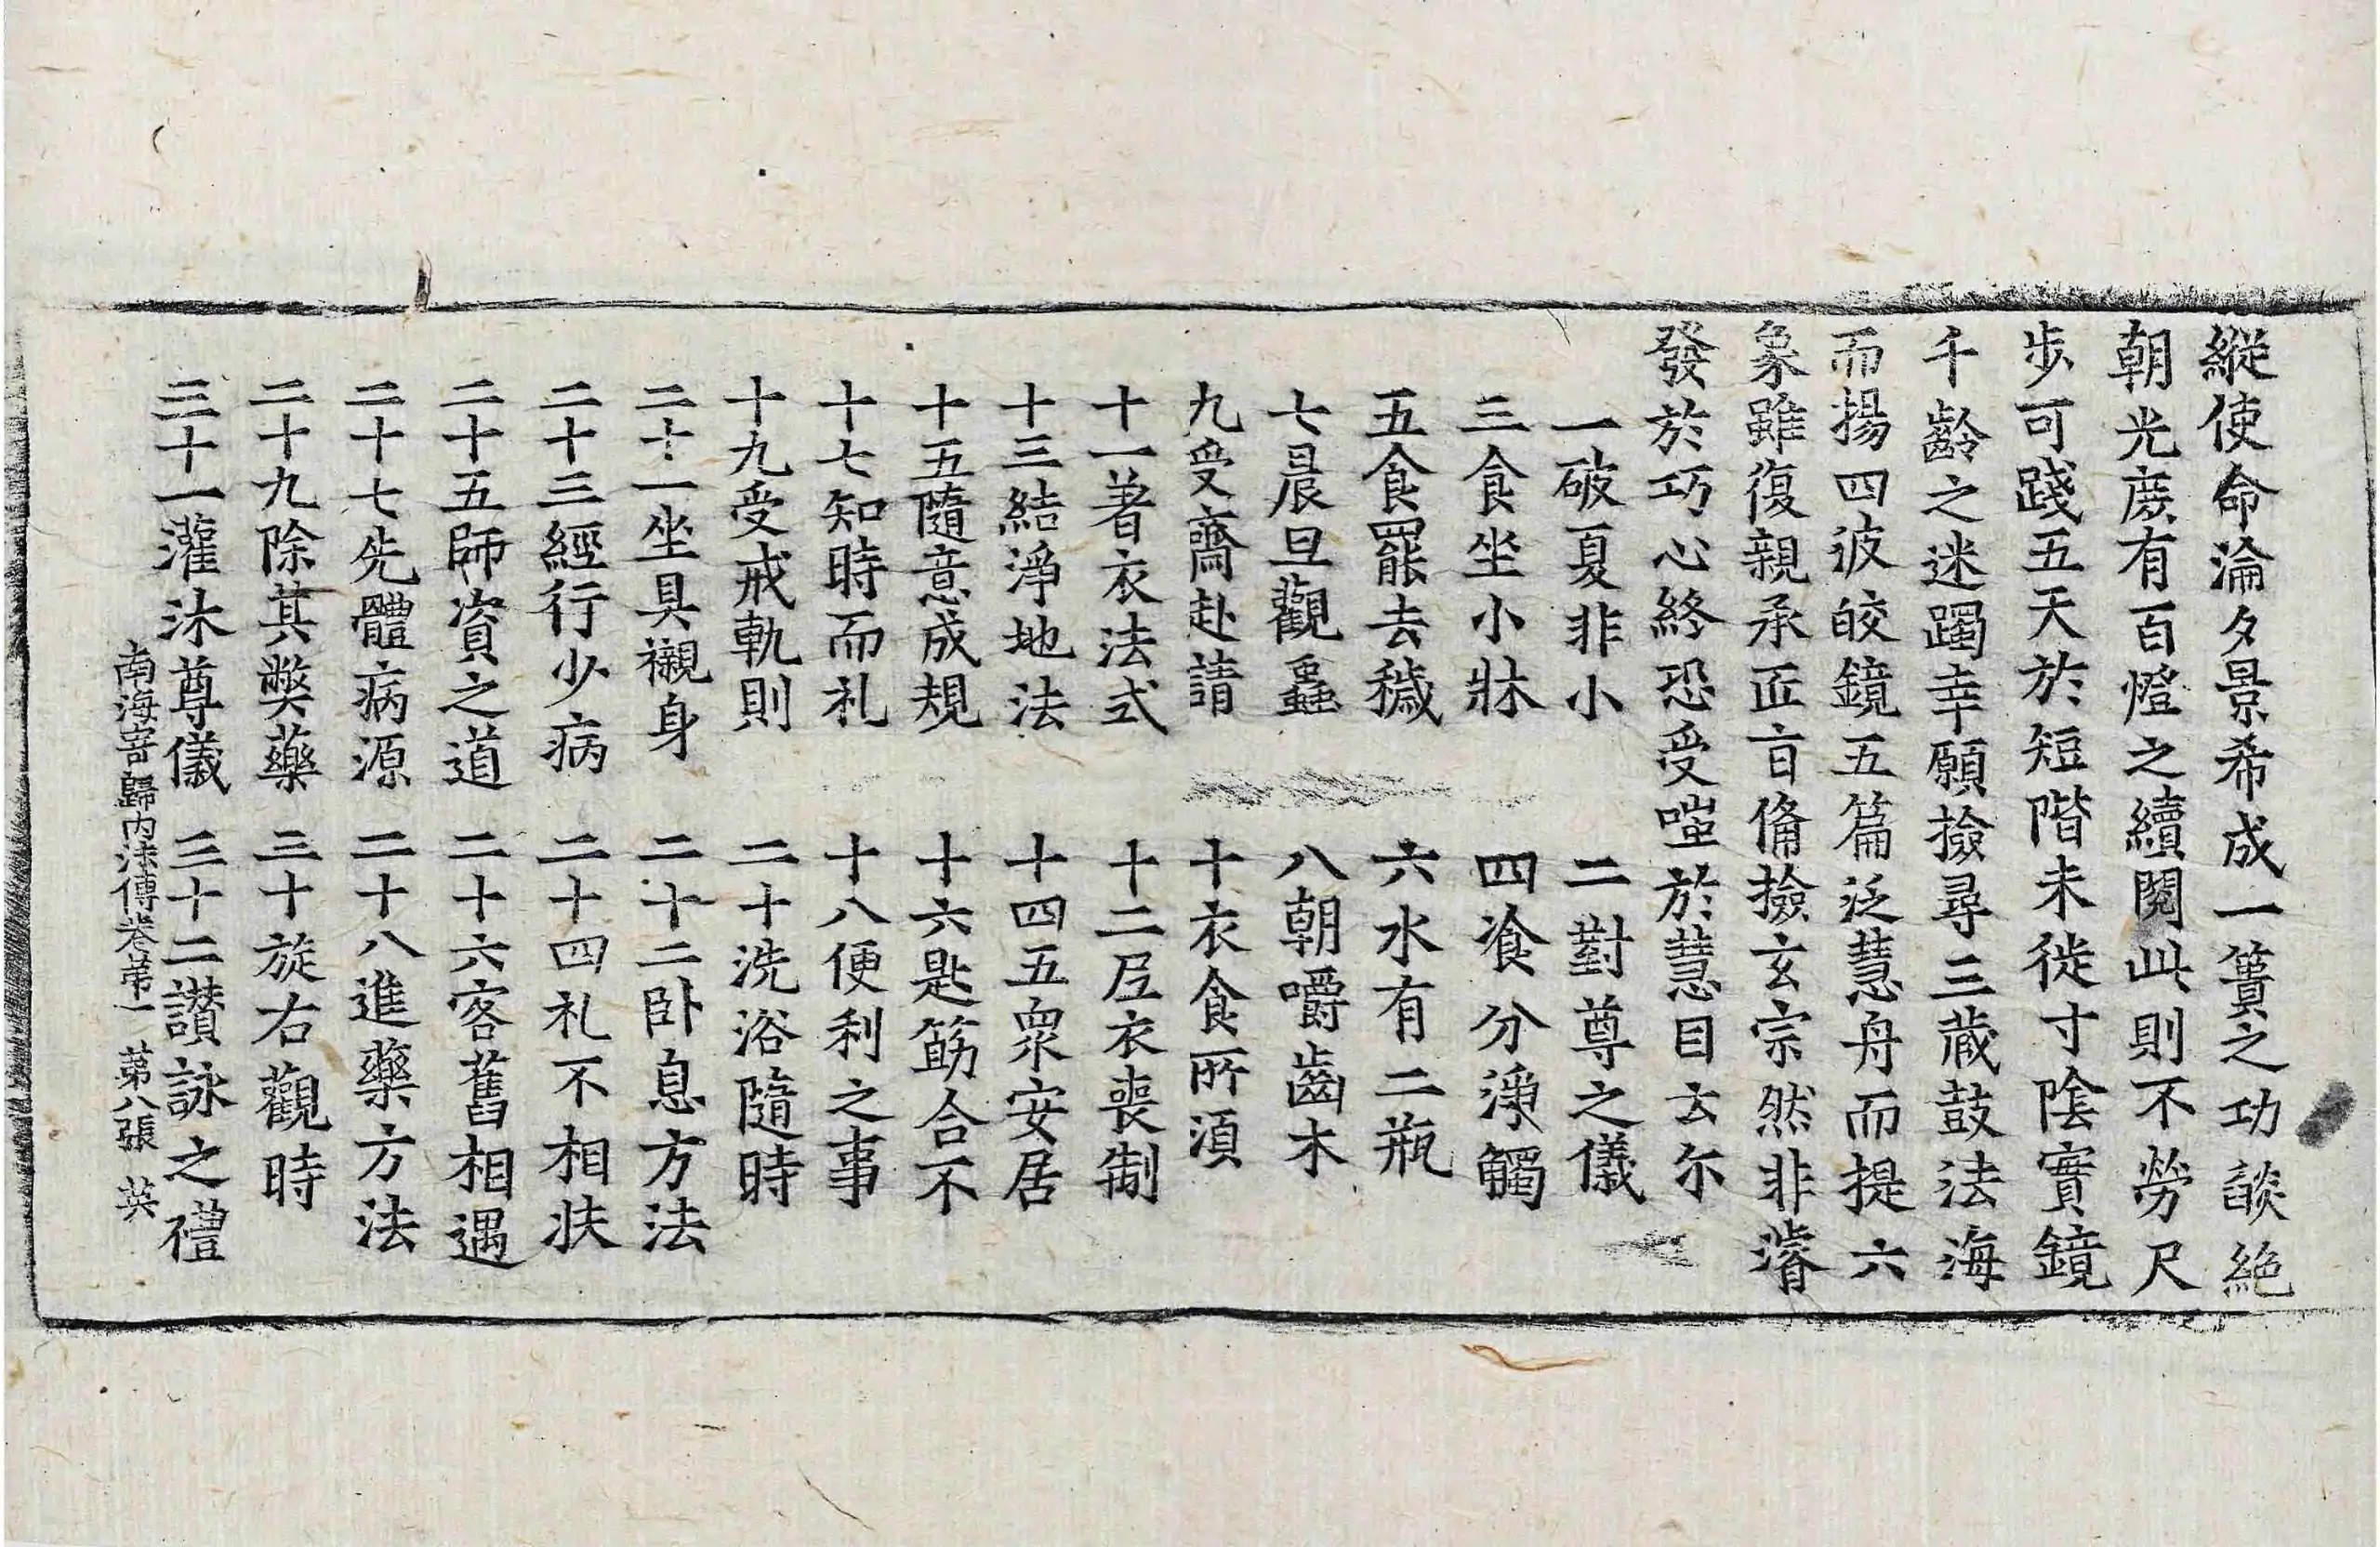 縱使命淪夕景希成一簣之功談絶
朝光庻有百燈之續閱此則不勞尺
步可踐五天於短階未徙寸陰實鏡
千齡之迷躅幸願撿尋三藏鼓法海
而揚四波皎鏡五篇泛慧舟而提六
象雖復親承匠旨俻撿玄宗然非濬
發於巧心終恐受嗤於慧目云尒
一破夏非小 二對尊之儀
三食坐小牀 四飡分淨觸
五食罷去穢 六水有二瓶
七晨旦觀蟲 八朝嚼齒木
九受齋赴請 十衣食所須
十一著衣法式 十二尼衣喪制
十三結淨地法 十四五衆安居
十五隨意成規 十六匙筯合不
十七知時而礼 十八便利之事
十九受戒軌則 二十洗浴隨時
二十一坐具襯身 二十二卧息方法
二十三經行少病 二十四礼不相扶
二十五師資之道 二十六客舊相遇
二十七先體病源 二十八進藥方法
二十九除其弊藥 三十旋右觀時
三十一灌沐尊儀 三十二讃詠之禮
南海寄歸内法傳卷苐一 苐八張 英